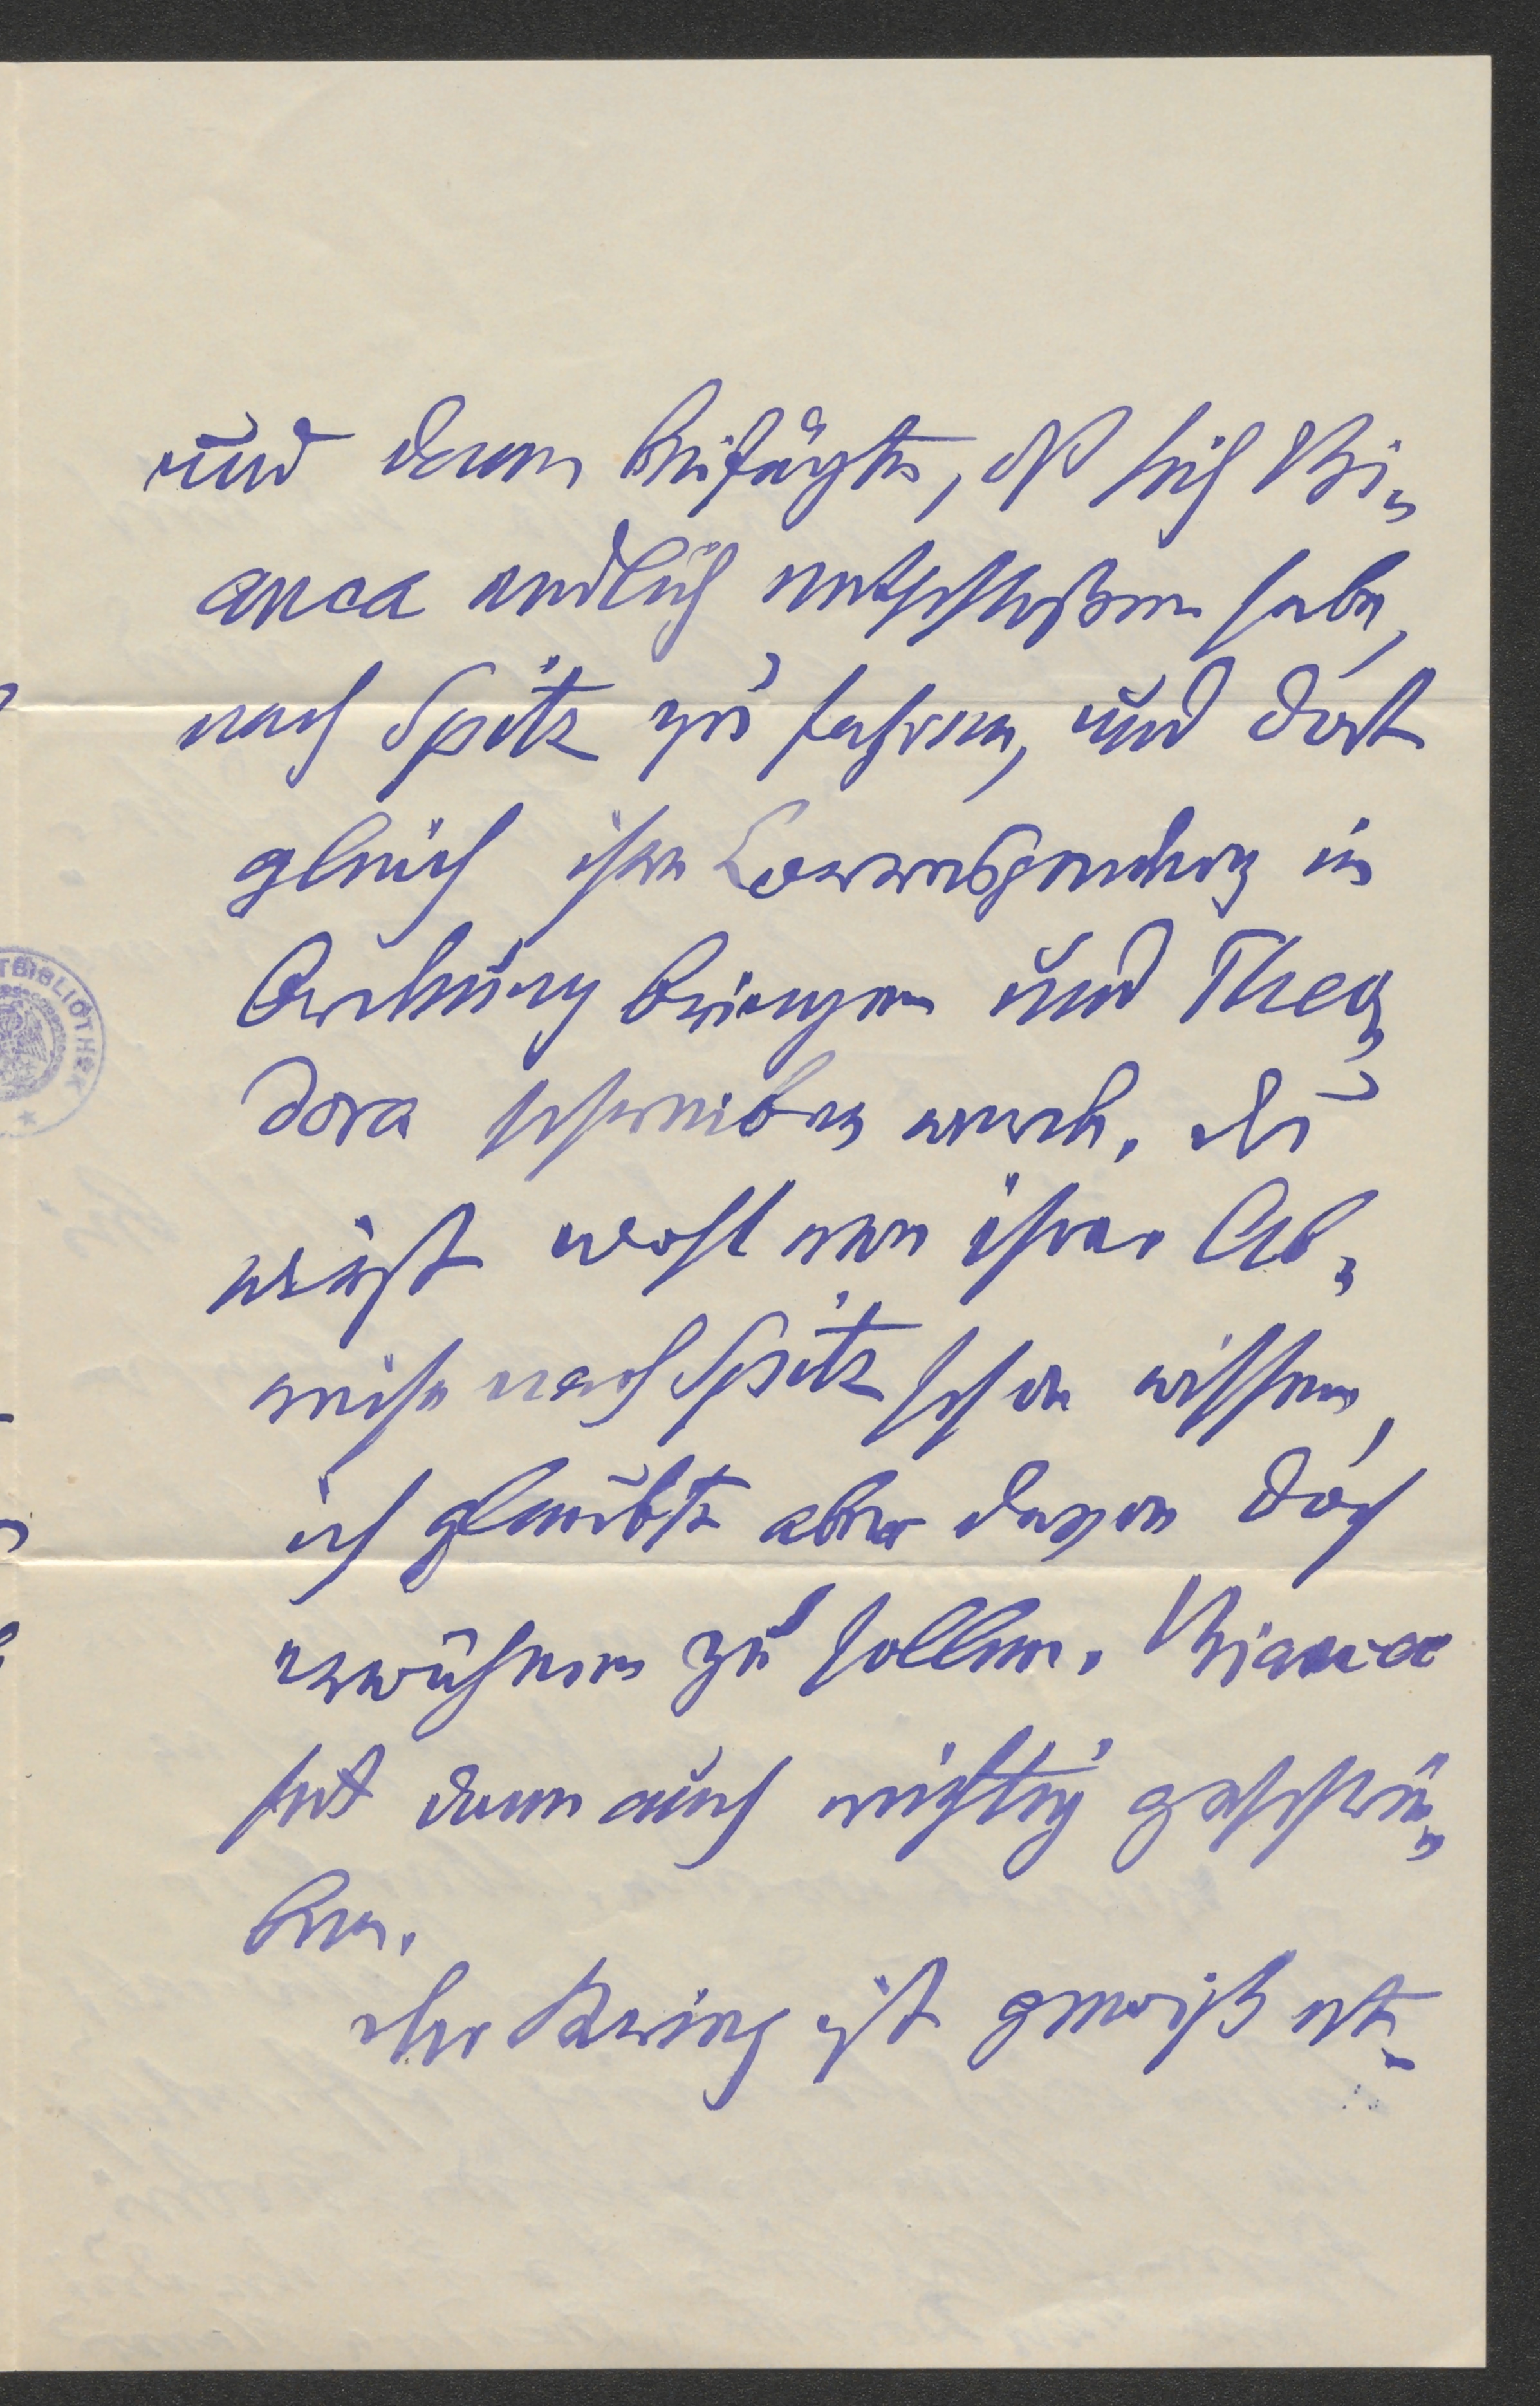 und dann beifügte, dß sich Bi-
anca endlich entschloßen habe,
nach Spitz zu fahren, und dort
gleich ihre Correspondenz in
Ordnung bringen und Theo-
dora schreiben werde. Du
wirst wohl von ihrer Ab-
reise nach Spitz schon wissen,
ich glaubte aber davon doch
erwähnen zu sollen. Bianca
hat dann auch richtig geschrie-
ben.
Der Kering ist gewiß et-
TBIBLIOTHEK